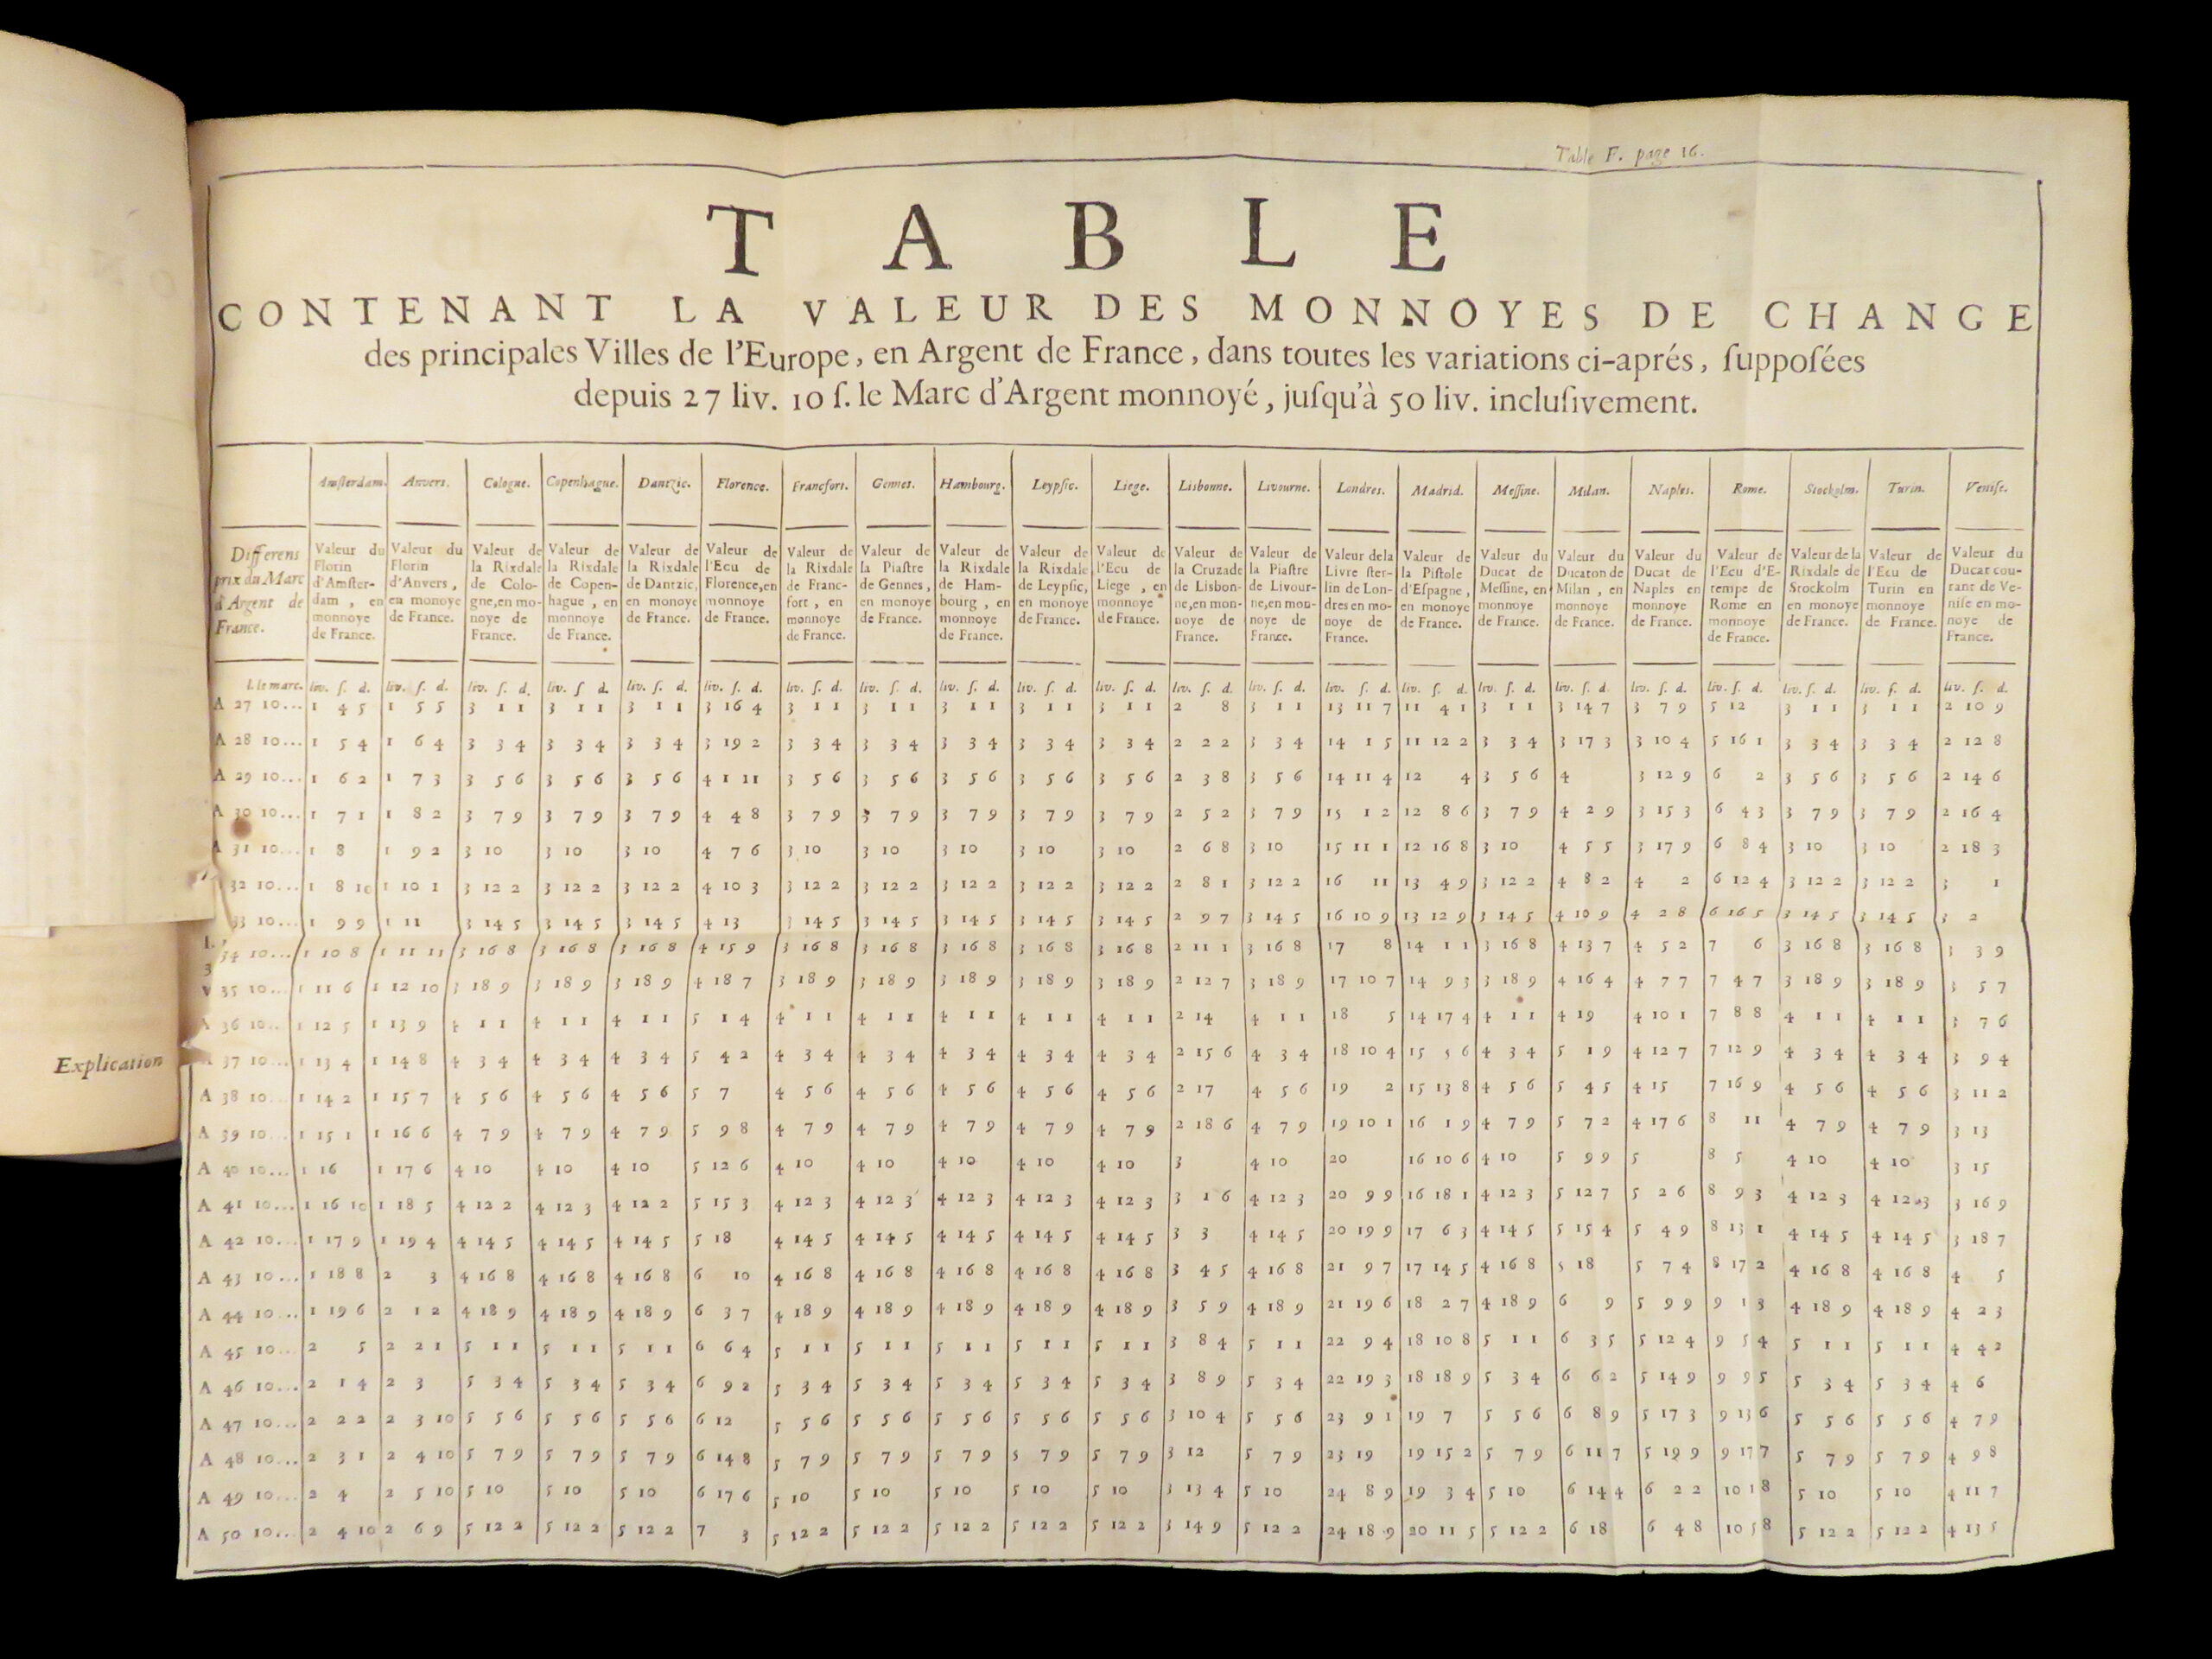 Table F. page 16.
TABLE
CONTENANT LA VALEUR DES MONNOYES DE CHANGE
des principales Villes de l'Europe, en Argent de France, dans toutes les variations ci-aprés, ſuppoſées
depuis 27 liv. 10 ſ. le Marc d'Argent monnoyé, juſqu'à 50 liv. incluſivement.
Amſterdam. Anvers. Cologne. Copenhague. Dantzic. Florence. Francfort. Gennes. Hambourg. Leypſic. Liege. Lisbonne. Livourne. Londres. Madrid. Meſſine. Milan. Naples. Rome. Stockolm. Turin. Veniſe.
Differens
prix du Marc
d'Argent de
France.
Valeur du
Florin
d'Amſter-
dam, en
monnoye
de France.
Valeur du
Florin
d'Anvers,
en monoye
de France.
Valeur de
la Rixdale
de Colo-
gne,en mo-
noye de
France.
Valeur de
la Rixdale
de Copen-
hague, en
monnoye
de France.
Valeur de
la Rixdale
de Dantzic,
en monoye
de France.
Valeur de
l'Ecu de
Florence,en
monnoye
de France.
Valeur de
la Rixdale
de Franc-
fort, en
monnoye
de France.
Valeur de
la Piaſtre
de Gennes,
en monoye
de France.
Valeur de
la Rixdale
de Ham-
bourg, en
monnoye
de France.
Valeur de
la Rixdale
de Leypſic,
en monoye
de France.
Valeur de
l'Ecu de
Liege, en
monnoye
de France.
Valeur de
la Cruzade
de Lisbon-
ne,en mon-
noye de
France.
Valeur de
la Piaſtre
de Livour-
ne,en mon-
noye de
France.
Valeur dela
Livre ſter-
lin de Lon-
dres en mo-
noye de
France.
Valeur de
la Piſtole
d'Eſpagne,
en monoye
de France.
Valeur du
Ducat de
Meſſine, en
monnoye
de France.
Valeur du
Ducaton de
Milan, en
monnoye
de France.
Valeur du
Ducat de
Naples en
monnoye
de France.
Valeur de
l'Ecu d'E-
tempe de
Rome en
monnoye
de France.
Valeur de la
Rixdale de
Stockolm
en monoye
de France.
Valeur de
l'Ecu de
Turin en
monnoye
de France.
Valeur du
Ducat cou-
rant de Ve-
niſe en mo-
noye de
France.
l. le marc. liv. ſ. d. liv. ſ. d. liv. ſ. d. liv. ſ d. liv. ſ. d. liv. ſ. d. liv. ſ. d. liv. ſ. d. liv. ſ. d. liv. ſ. d. liv. ſ. d. liv. ſ. d. liv. ſ. d. liv. ſ. d. liv. ſ. d. liv. ſ. d. liv. ſ. d. liv. ſ. d. liv. ſ. d. liv. ſ. d. liv. ſ. d. liv. ſ. d.
A 27 10... 1 4 5 1 5 5 3 1 1 3 1 1 3 1 1 3 16 4 3 1 1 3 1 1 3 1 1 3 1 1 3 1 1 2 8 3 1 1 13 11 7 11 4 1 3 1 1 3 14 7 3 7 9 5 12 3 1 1 3 1 1 2 10 9
A 28 10... 1 5 4 1 6 4 3 3 4 3 3 4 3 3 4 3 19 2 3 3 4 3 3 4 3 3 4 3 3 4 3 3 4 2 2 2 3 3 4 14 1 5 11 12 2 3 3 4 3 17 3 3 10 4 5 16 1 3 3 4 3 3 4 2 12 8
A 29 10... 1 6 2 1 7 3 3 5 6 3 5 6 3 5 6 4 1 11 3 5 6 3 5 6 3 5 6 3 5 6 3 5 6 2 3 8 3 5 6 14 11 4 12 4 3 5 6 4 3 12 9 6 2 3 5 6 3 5 6 2 14 6
A 30 10... 1 7 1 1 8 2 3 7 9 3 7 9 3 7 9 4 4 8 3 7 9 3 7 9 3 7 9 3 7 9 3 7 9 2 5 2 3 7 9 15 1 2 12 8 6 3 7 9 4 2 9 3 15 3 6 4 3 3 7 9 3 7 9 2 16 4
A 31 10... 1 8 1 9 2 3 10 3 10 3 10 4 7 6 3 10 3 10 3 10 3 10 3 10 2 6 8 3 10 15 11 1 12 16 8 3 10 4 5 5 3 17 9 6 8 4 3 10 3 10 2 18 3
32 10... 1 8 10 1 10 1 3 12 2 3 12 2 3 12 2 4 10 3 3 12 2 3 12 2 3 12 2 3 12 2 3 12 2 2 8 1 3 12 2 16 11 13 4 9 3 12 2 4 8 2 4 2 6 12 4 3 12 2 3 12 2 3 1
33 10... 1 9 9 1 11 3 14 5 3 14 5 3 14 5 4 13 3 14 5 3 14 5 3 14 5 3 14 5 3 14 5 2 9 7 3 14 5 16 10 9 13 12 9 3 14 5 4 10 9 4 2 8 6 16 5 3 14 5 3 14 5 3 2
34 10... 1 10 8 1 11 11 3 16 8 3 16 8 3 16 8 4 15 9 3 16 8 3 16 8 3 16 8 3 16 8 3 16 8 2 11 1 3 16 8 17 8 14 1 1 3 16 8 4 13 7 4 5 2 7 6 3 16 8 3 16 8 3 3 9
35 10... 1 11 6 1 12 10 3 18 9 3 18 9 3 18 9 4 18 7 3 18 9 3 18 9 3 18 9 3 18 9 3 18 9 2 12 7 3 18 9 17 10 7 14 9 3 3 18 9 4 16 4 4 7 7 7 4 7 3 18 9 3 18 9 3 5 7
A 36 10... 1 12 5 1 13 9 4 1 1 4 1 1 4 1 1 5 1 4 4 1 1 4 1 1 4 1 1 4 1 1 4 1 1 2 14 4 1 1 18 5 14 17 4 4 1 1 4 19 4 10 1 7 8 8 4 1 1 4 1 1 3 7 6
Explication
A 37 10... 1 13 4 1 14 8 4 3 4 4 3 4 4 3 4 5 4 2 4 3 4 4 3 4 4 3 4 4 3 4 4 3 4 2 15 6 4 3 4 18 10 4 15 5 6 4 3 4 5 1 9 4 12 7 7 12 9 4 3 4 4 3 4 3 9 4
A 38 10... 1 14 2 1 15 7 4 5 6 4 5 6 4 5 6 5 7 4 5 6 4 5 6 4 5 6 4 5 6 4 5 6 2 17 4 5 6 19 2 15 13 8 4 5 6 5 4 5 4 15 7 16 9 4 5 6 4 5 6 3 11 2
A 39 10... 1 15 1 1 16 6 4 7 9 4 7 9 4 7 9 5 9 8 4 7 9 4 7 9 4 7 9 4 7 9 4 7 9 2 18 6 4 7 9 19 10 1 16 1 9 4 7 9 5 7 2 4 17 6 8 11 4 7 9 4 7 9 3 13
A 40 10... 1 16 1 17 6 4 10 4 10 4 10 5 12 6 4 10 4 10 4 10 4 10 4 10 3 4 10 20 16 10 6 4 10 5 9 9 5 8 5 4 10 4 10 3 15
A 41 10... 1 16 10 1 18 5 4 12 2 4 12 3 4 12 2 5 15 3 4 12 3 4 12 3 4 12 3 4 12 3 4 12 3 3 1 6 4 12 3 20 9 9 16 18 1 4 12 3 5 12 7 5 2 6 8 9 3 4 12 3 4 12 3 3 16 9
A 42 10... 1 17 9 1 19 4 4 14 5 4 14 5 4 14 5 5 18 4 14 5 4 14 5 4 14 5 4 14 5 4 14 5 3 3 4 14 5 20 19 9 17 6 3 4 14 5 5 15 4 5 4 9 8 13 1 4 14 5 4 14 5 3 18 7
A 43 10... 1 18 8 2 3 4 16 8 4 16 8 4 16 8 6 10 4 16 8 4 16 8 4 16 8 4 16 8 4 16 8 3 4 5 4 16 8 21 9 7 17 14 5 4 16 8 5 18 5 7 4 8 17 2 4 16 8 4 16 8 4 5
A 44 10... 1 19 6 2 1 2 4 18 9 4 18 9 4 18 9 6 3 7 4 18 9 4 18 9 4 18 9 4 18 9 4 18 9 3 5 9 4 18 9 21 19 6 18 2 7 4 18 9 6 9 5 9 9 9 1 3 4 18 9 4 18 9 4 2 3
A 45 10... 2 5 2 2 1 5 1 1 5 1 1 5 1 1 6 6 4 5 1 1 5 1 1 5 1 1 5 1 1 5 1 1 3 8 4 5 1 1 22 9 4 18 10 8 5 1 1 6 3 5 5 12 4 9 5 4 5 1 1 5 1 1 4 4 2
A 46 10... 2 1 4 2 3 5 3 4 5 3 4 5 3 4 6 9 2 5 3 4 5 3 4 5 3 4 5 3 4 5 3 4 3 8 9 5 3 4 22 19 3 18 18 9 5 3 4 6 6 2 5 14 9 9 9 5 5 3 4 5 3 4 4 6
A 47 10... 2 2 2 2 3 10 5 5 6 5 5 6 5 5 6 6 12 5 5 6 5 5 6 5 5 6 5 5 6 5 5 6 3 10 4 5 5 6 23 9 1 19 7 5 5 6 6 8 9 5 17 3 9 13 6 5 5 6 5 5 6 4 7 9
A 48 10... 2 3 1 2 4 10 5 7 9 5 7 9 5 7 9 6 14 8 5 7 9 5 7 9 5 7 9 5 7 9 5 7 9 3 12 5 7 9 23 19 19 15 2 5 7 9 6 11 7 5 19 9 9 17 7 5 7 9 5 7 9 4 9 8
A 49 10... 2 4 2 5 10 5 10 5 10 5 10 6 17 6 5 10 5 10 5 10 5 10 5 10 3 13 4 5 10 24 8 9 19 3 4 5 10 6 14 4 6 2 2 10 1 8 5 10 5 10 4 11 7
A 50 10... 2 4 10 2 6 9 5 12 2 5 12 2 5 12 2 7 3 5 12 2 5 12 2 5 12 2 5 12 2 5 12 2 3 14 9 5 12 2 24 18 9 20 11 5 5 12 2 6 18 6 4 8 10 5 8 5 12 2 5 12 2 4 13 5